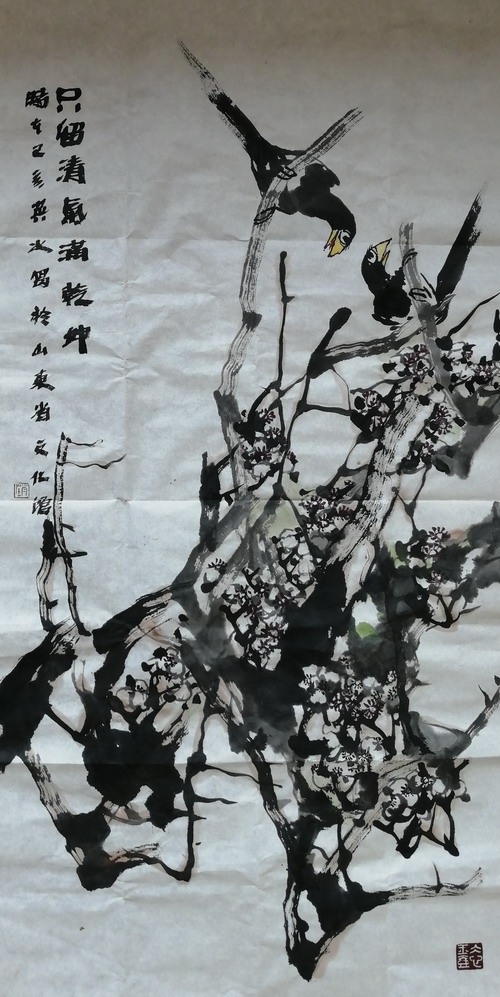 只留清氣滿乾坤
時在己亥冰寫於山東省文化館